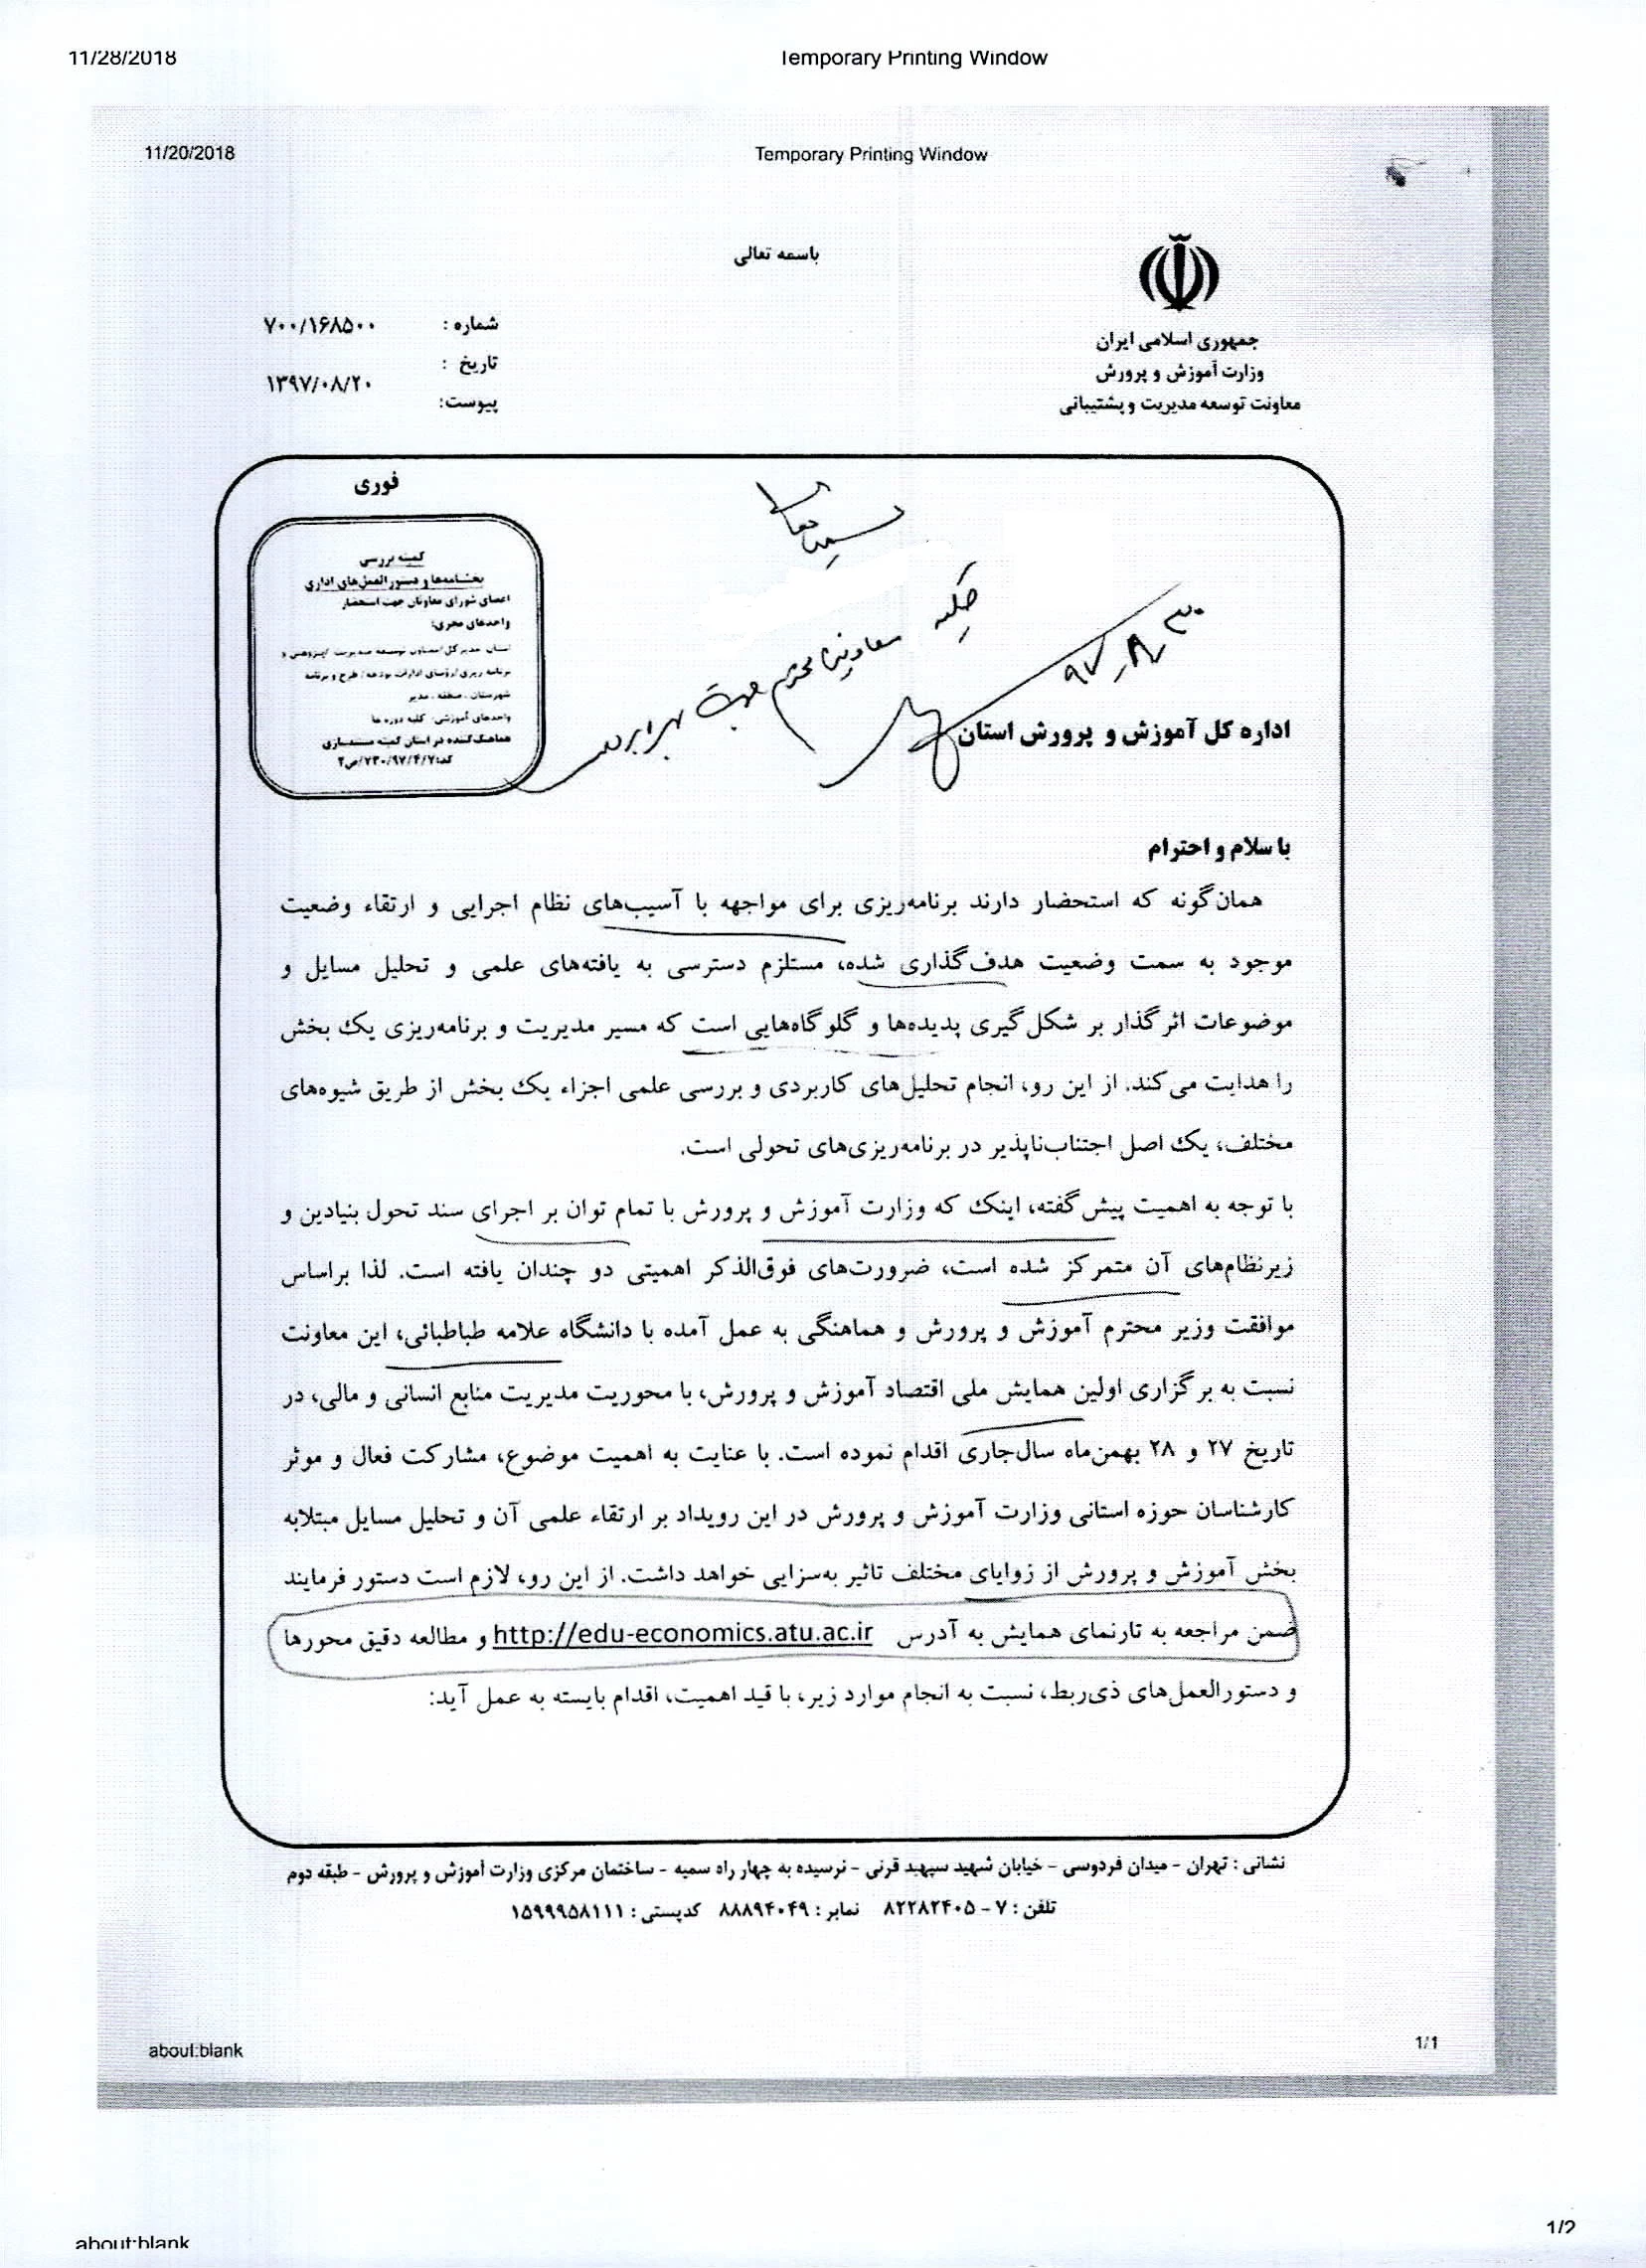 11/28/2018
Temporary Printing Window
11/20/2018
Temporary Printing Window
باسمه تعالی
جمهوری اسلامی ایران
وزارت آموزش و پرورش
معاونت توسعه مدیریت و پشتیبانی
شماره : ۷۰۰/۱۶۸۵۰۰
تاریخ : ۱۳۹۷/۰۸/۲۰
پیوست:
فوری
کمیته بررسی
بخشنامه‌ها و دستورالعمل‌های اداری
اعضای شورای معاونان جهت استحضار
واحدهای مجری:
استان: مدیرکل/معاون توسعه مدیریت /پژوهش و
برنامه ریزی/رؤسای ادارات بودجه/ طرح و برنامه
شهرستان ، منطقه ، مدیر
واحدهای آموزشی- کلیه دوره ها
هماهنگ‌کننده در استان کمیته مستندسازی
کد:۷۳۰/۹۷/۴/۷/ص۲
کلیه معاونین محترم جهت
۹۷-۸-۳۰
اداره کل آموزش و پرورش استان
با سلام و احترام
همان‌گونه که استحضار دارند برنامه‌ریزی برای مواجهه با آسیب‌های نظام اجرایی و ارتقاء وضعیت
موجود به سمت وضعیت هدف‌گذاری شده، مستلزم دسترسی به یافته‌های علمی و تحلیل مسایل و
موضوعات اثرگذار بر شکل‌گیری پدیده‌ها و گلوگاه‌هایی است که مسیر مدیریت و برنامه‌ریزی یک بخش
را هدایت می‌کند. از این رو، انجام تحلیل‌های کاربردی و بررسی علمی اجزاء یک بخش از طریق شیوه‌های
مختلف، یک اصل اجتناب‌ناپذیر در برنامه‌ریزی‌های تحولی است.
با توجه به اهمیت پیش‌گفته، اینک که وزارت آموزش و پرورش با تمام توان بر اجرای سند تحول بنیادین و
زیرنظام‌های آن متمرکز شده است، ضرورت‌های فوق‌الذکر اهمیتی دو چندان یافته است. لذا براساس
موافقت وزیر محترم آموزش و پرورش و هماهنگی به عمل آمده با دانشگاه علامه طباطبائی، این معاونت
نسبت به برگزاری اولین همایش ملی اقتصاد آموزش و پرورش، با محوریت مدیریت منابع انسانی و مالی، در
تاریخ ۲۷ و ۲۸ بهمن‌ماه سال‌جاری اقدام نموده است. با عنایت به اهمیت موضوع، مشارکت فعال و موثر
کارشناسان حوزه استانی وزارت آموزش و پرورش در این رویداد بر ارتقاء علمی آن و تحلیل مسایل مبتلابه
بخش آموزش و پرورش از زوایای مختلف تاثیر به‌سزایی خواهد داشت. از این رو، لازم است دستور فرمایند
ضمن مراجعه به تارنمای همایش به آدرس http://edu-economics.atu.ac.ir و مطالعه دقیق محورها
و دستورالعمل‌های ذی‌ربط، نسبت به انجام موارد زیر، با قید اهمیت، اقدام بایسته به عمل آید:
نشانی : تهران - میدان فردوسی - خیابان شهید سپهبد قرنی - نرسیده به چهار راه سمیه - ساختمان مرکزی وزارت آموزش و پرورش - طبقه دوم
تلفن : ۷ - ۸۲۲۸۲۴۰۵ نمابر : ۸۸۸۹۴۰۴۹ کدپستی : ۱۵۹۹۹۵۸۱۱۱
about:blank
1/1
about:blank
1/2